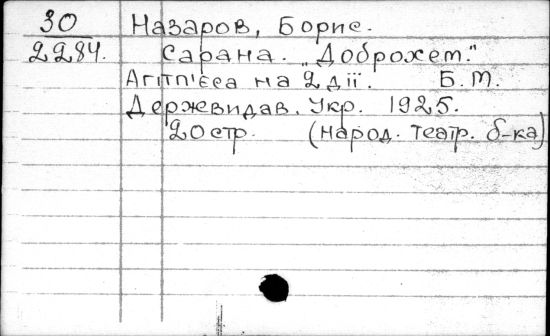 30 Назаров, Борис.
2284. Сарана. „Доброхет."
Агітп'єса на 2 дії. Б.М.
Державидав. Укр. 1925.
20 стр. (народ. театр. б-ка)